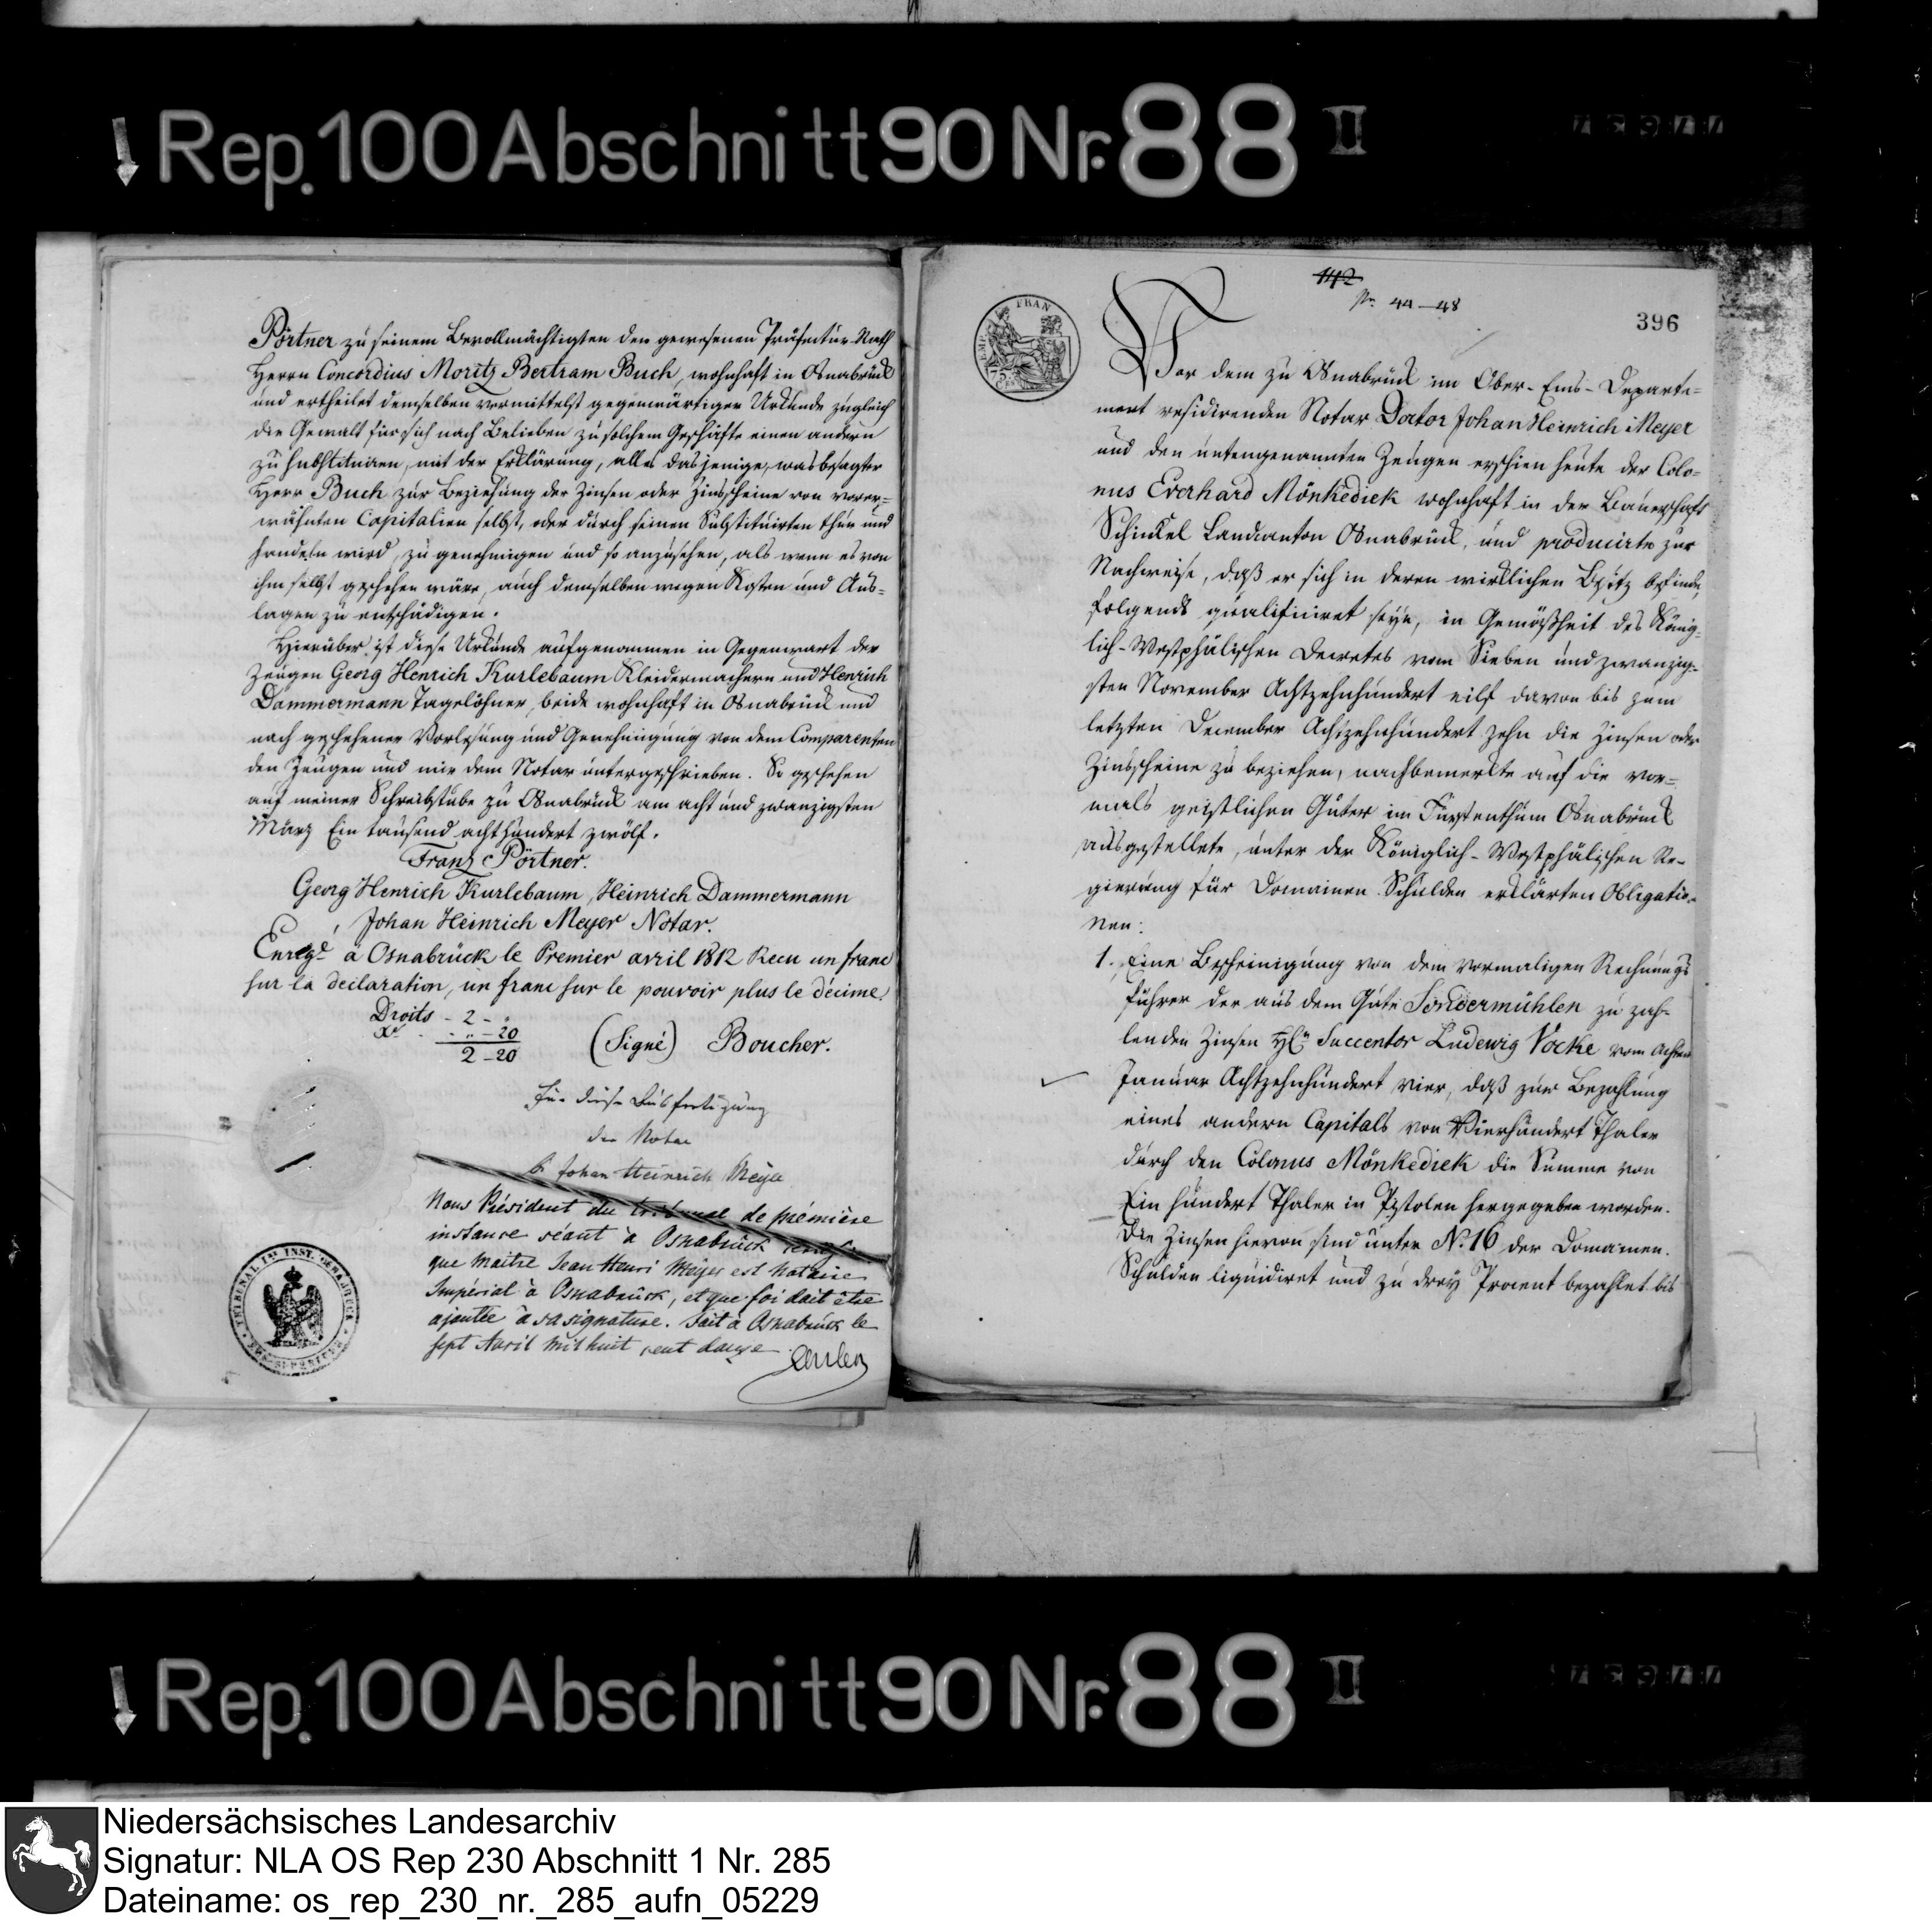 Rep. 100 Abschnitt 90 Nr. 88 II
Pörtner zu seinem Bevollmächtigten den gewesenen Präfectur-Rath
Herrn Concordius Moritz Bertram Buch, wohnhaft in Osnabrück
und ertheilet demselben vermittelst gegenwärtiger Urkunde zugleich
die Gewalt für sich nach Belieben zu solchem Geschäfte einen andern
zu substituiren, mit der Erklärung, alles dasjenige, was besagter
Herr Buch zur Beziehung der Zinsen oder Zinsscheine von vorer-
wähnten Capitalien selbst, oder durch seinen Substituirten thun und
handeln wird, zu genehmigen und so anzusehen, als wenn es von
ihm selbst geschehen wäre, auch demselben wegen Kosten und Aus-
lagen zu entschädigen.
Hierüber ist diese Urkunde aufgenommen in Gegenwart der
Zeugen Georg Henrich Kurlebaum Kleidermachern und Henrich
Dammermann Tagelöhner, beide wohnhaft in Osnabrück und
nach geschehener Vorlesung und Genehmigung von dem Comparenten
den Zeugen und mir dem Notar unterschrieben. So geschehen
auf meiner Schreibstube zu Osnabrück am acht und zwanzigsten
März Ein tausend achthundert zwölf.
Franz Pörtner.
Georg Henrich Kurlebaum, Heinrich Dammermann
Johan Heinrich Meyer Notar.
Enregé à Osnabrück le Premier avril 1812 Recu un franc
sur la declaration, un franc sur le pouvoir plus le décime.
Droits - 2 - "
" - 20
2 - 20
(Signé) Boucher.
Für diese Ausfertigung
der Notar
Johan Heinrich Meyer
Nous Président du tribunal de première
instance séant à Osnabrück
que Maitre Jean Henri Meyer est Notaire
Impérial à Osnabrück, et que foi doit être
ajoutée à sa signature. Fait à Osnabrück le
sept Avril mil huit cent douze
TRIBUNAL 1re INST. OSNABRÜCK
142
Nr. 44-48
396
FRAN
Vor dem zu Osnabrück im Ober-Ems-Departe-
ment residirenden Notar Doctor Johan Heinrich Meyer
und den untengenannten Zeugen erschien heute der Colo-
nus Everhard Mönkediek wohnhaft in der Bauerschaft
Schinkel Landcanton Osnabrück, und producirte zur
Nachweise, daß er sich in deren wirklichen Besitz befinde,
folgends qualificiret seye, in Gemäßheit des König-
lich-Westphälischen Decretes vom Sieben und zwanzig-
sten November Achtzehnhundert eilf davon bis zum
letzten December Achtzehnhundert zehn die Zinsen oder
Zinsscheine zu beziehen, nachbemerkte auf die vor-
mals geistlichen Güter im Fürstenthum Osnabrück
ausgestellete, unter der Königlich-Westphälischen Re-
gierung für Domainen Schulden erklärten Obligatio-
nen:
1. Eine Bescheinigung von dem vormaligen Rechnungs
führer der aus dem Gute Sondermühlen zu zah-
lenden Zinsen Succentor Ludewig Vocke vom Achten
Januar Achtzehnhundert vier, daß zur Bezahlung
eines andern Capitals von Vierhundert Thaler
durch den Colonus Mönkediek die Summe von
Ein hundert Thaler in Pistolen hergegeben worden.
Die Zinsen hievon sind unter No. 16 der Domainen.
Schulden liquidiret und zu drey Procent bezahlet bis
Rep. 100 Abschnitt 90 Nr. 88 II
Niedersächsisches Landesarchiv
Signatur: NLA OS Rep 230 Abschnitt 1 Nr. 285
Dateiname: os_rep_230_nr._285_aufn_05229